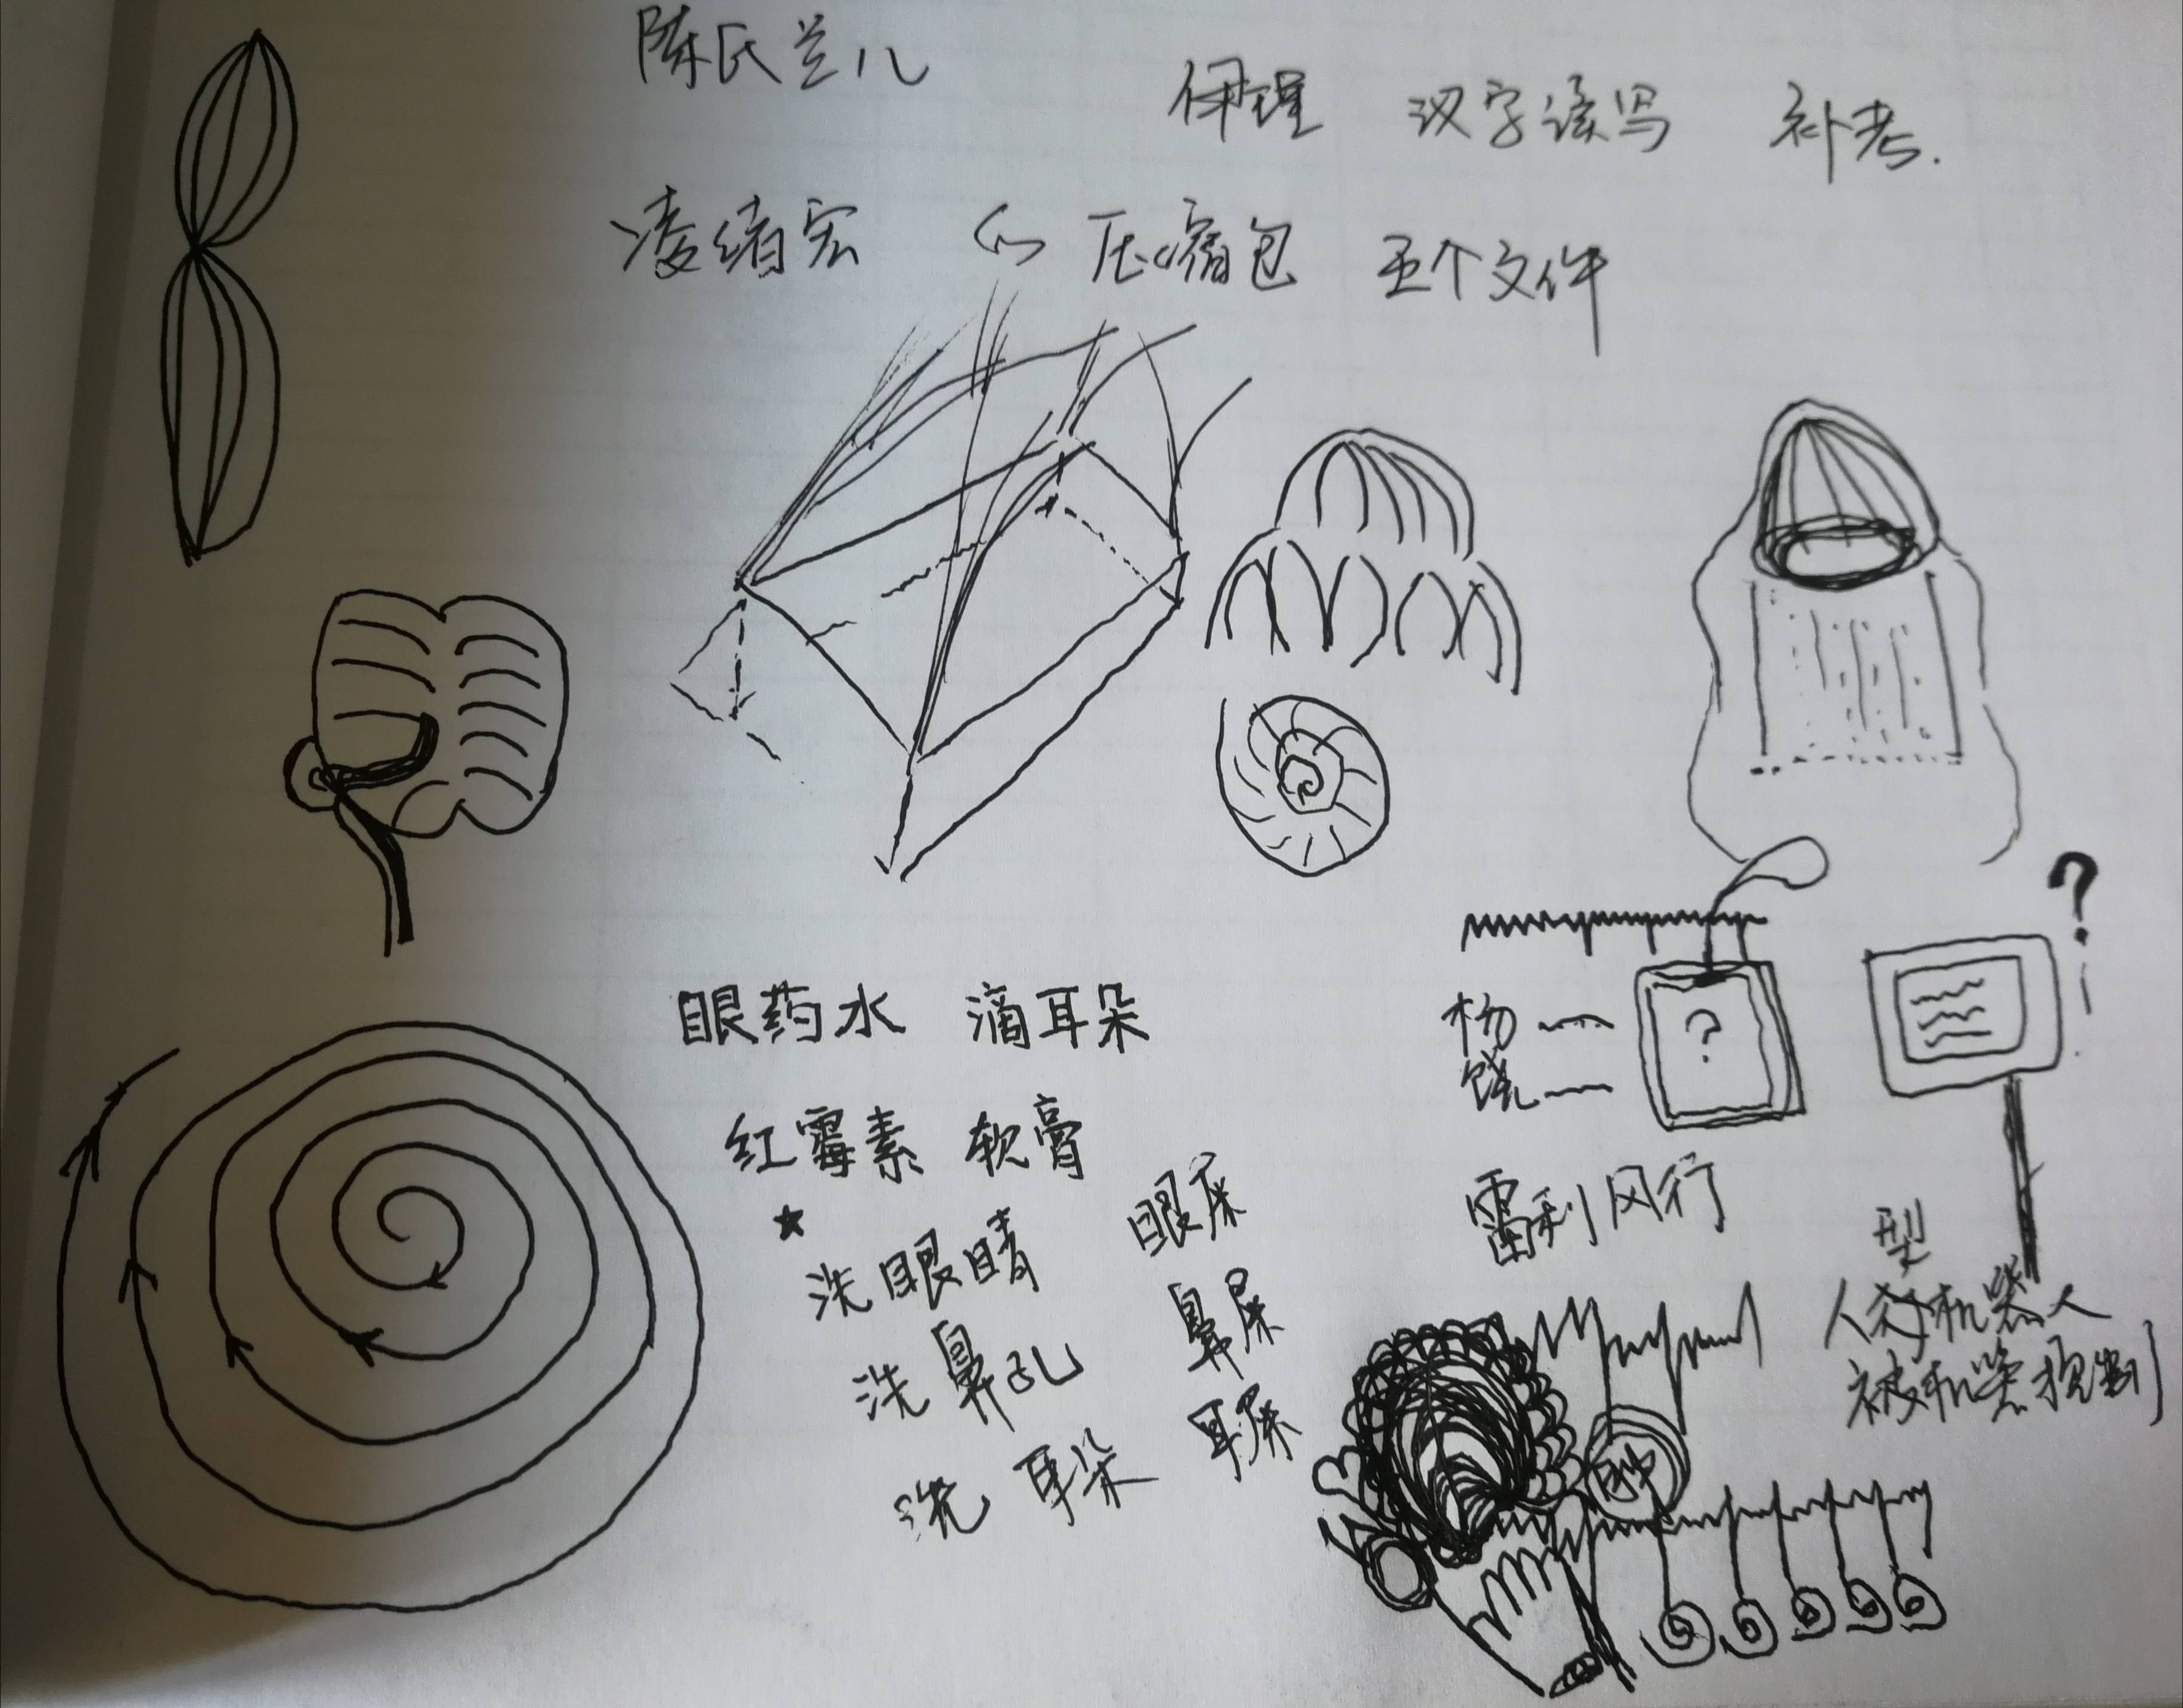 陈氏兰儿
伊理 汉字读写 补考.
凌绪宏 的 压缩包 五个文件
眼药水 滴耳朵
红霉素 软膏
洗眼睛 眼屎
洗鼻孔 鼻屎
洗耳朵 耳屎
杨
饶
?
?
雷利风行
型
机器人
被机器